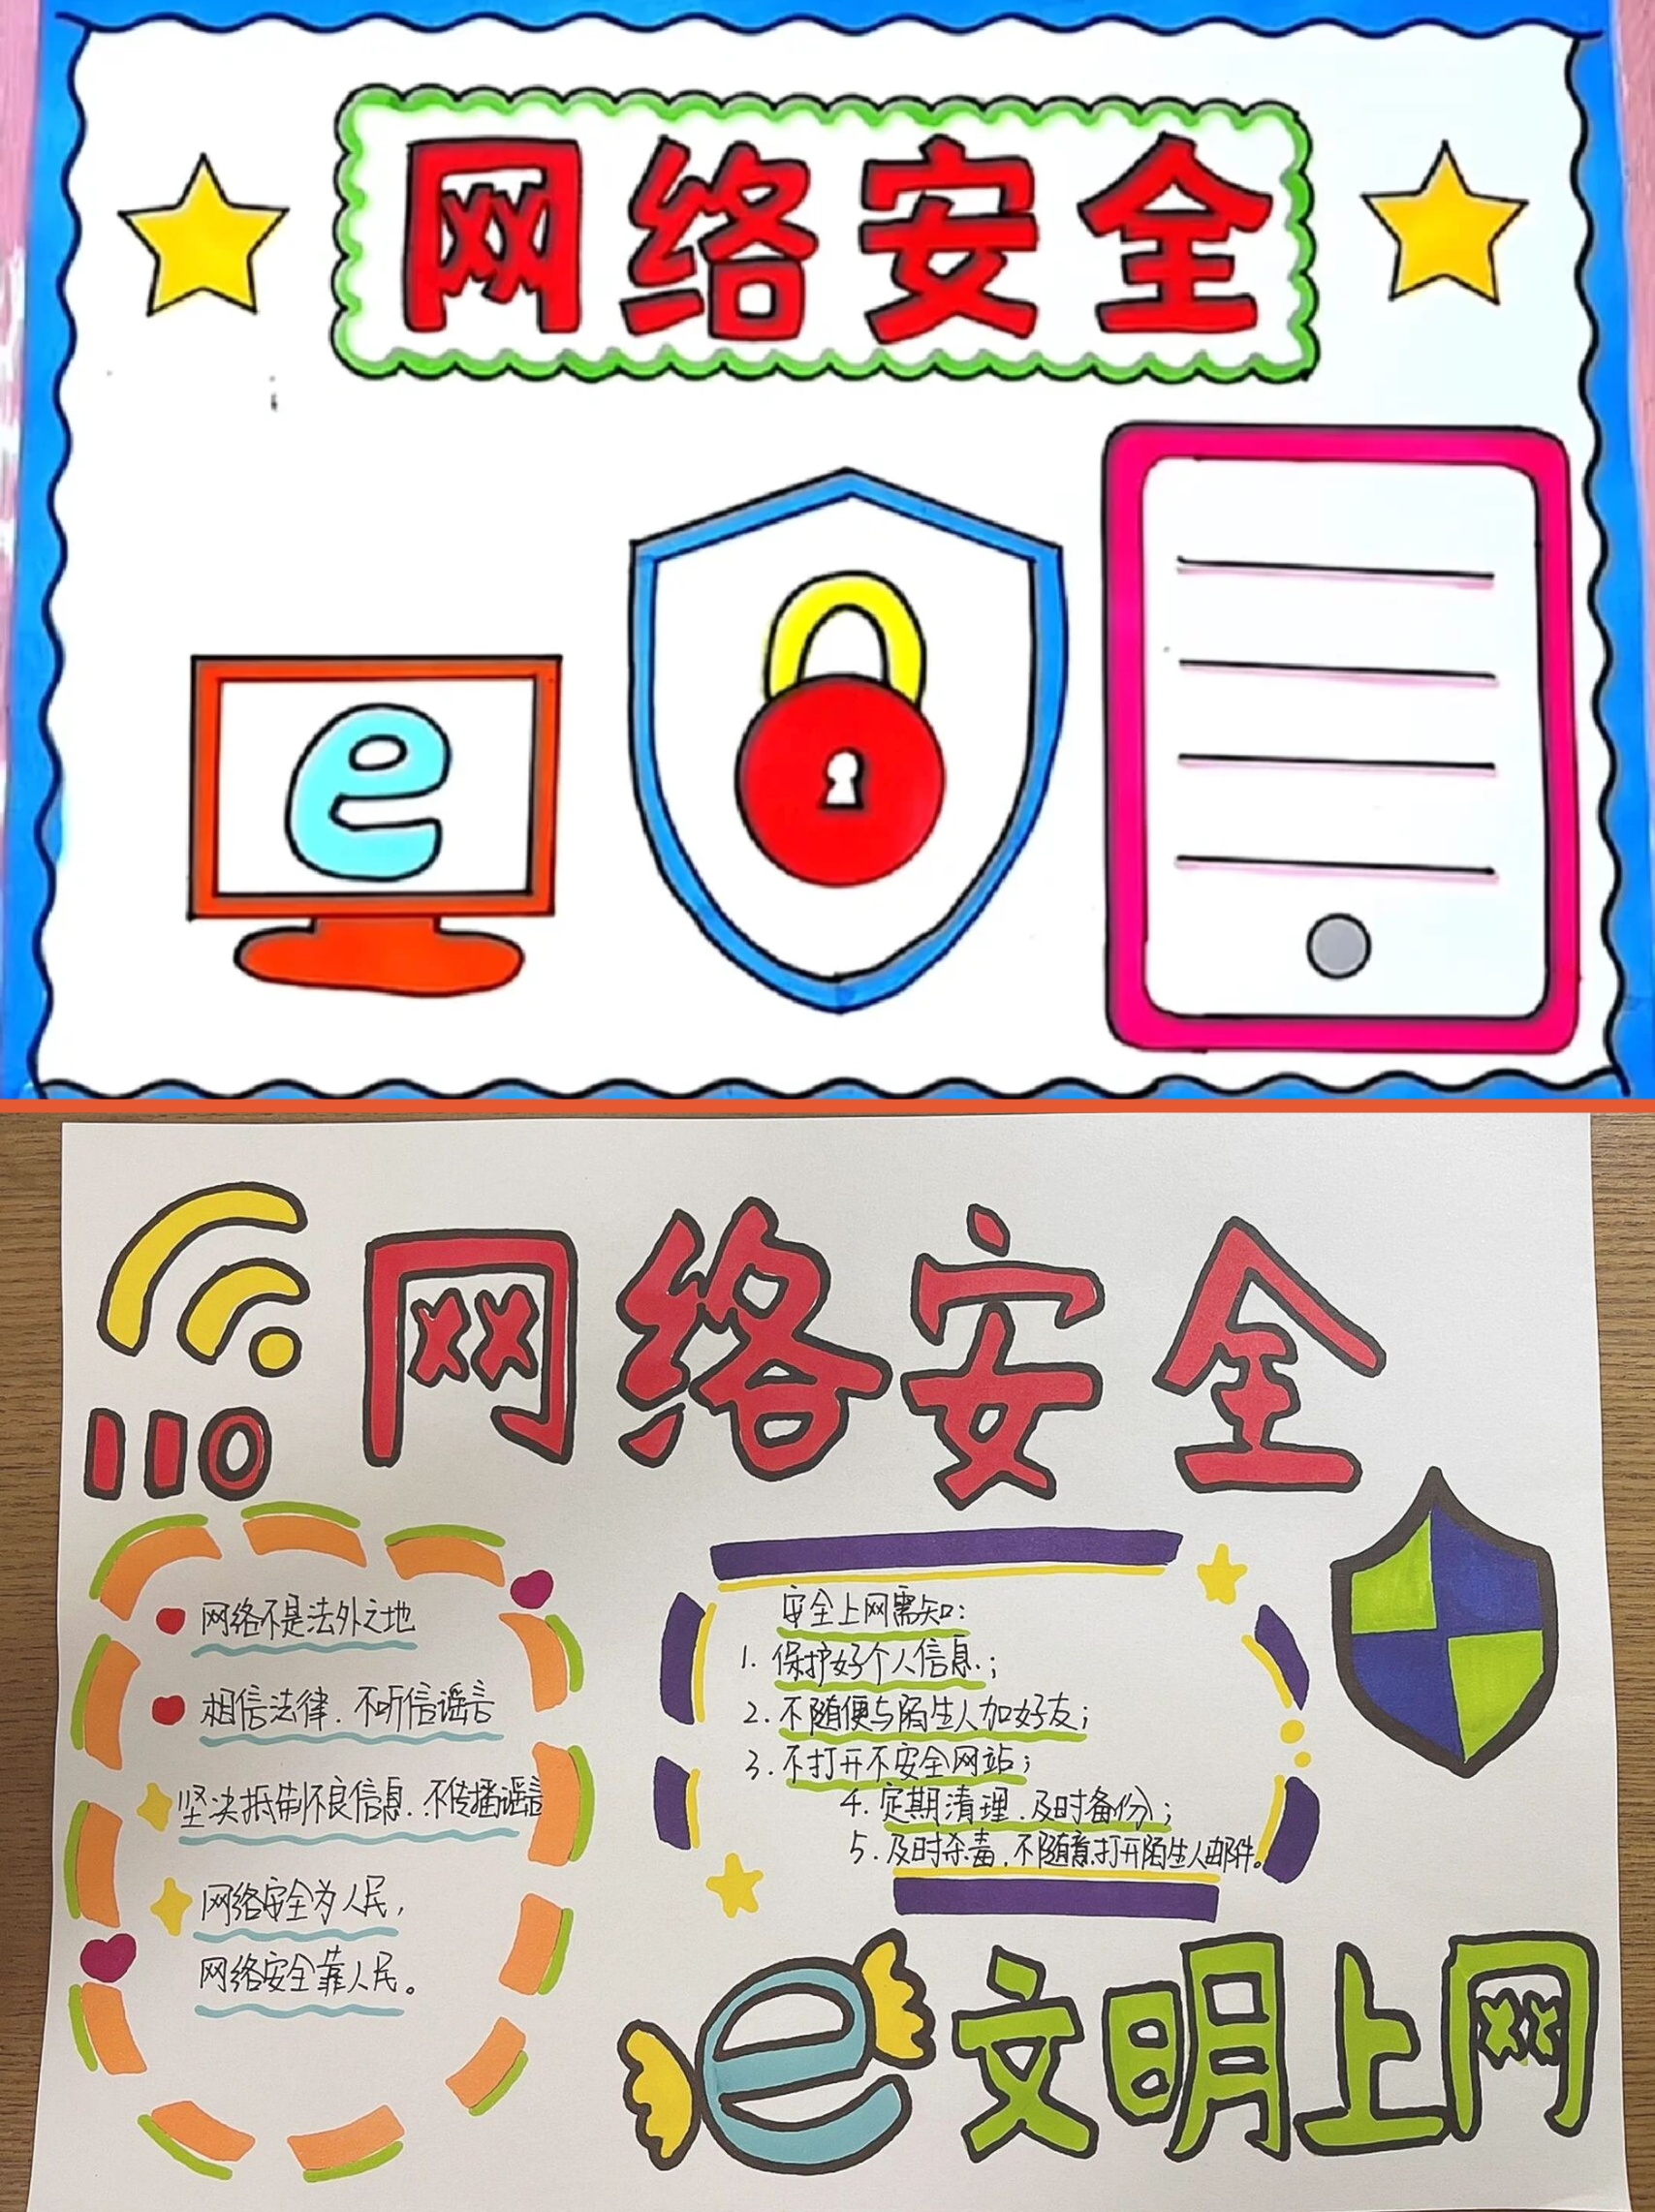 网络安全
e
网络安全
110
网络不是法外之地
相信法律.不听信谣言
坚决抵制不良信息.不传播谣言
网络安全为人民,
网络安全靠人民。
安全上网需知:
1.保护好个人信息.;
2.不随便与陌生人加好友;
3.不打开不安全网站;
4.定期清理.及时备份;
5.及时杀毒.不随意打开陌生人邮件。
e文明上网